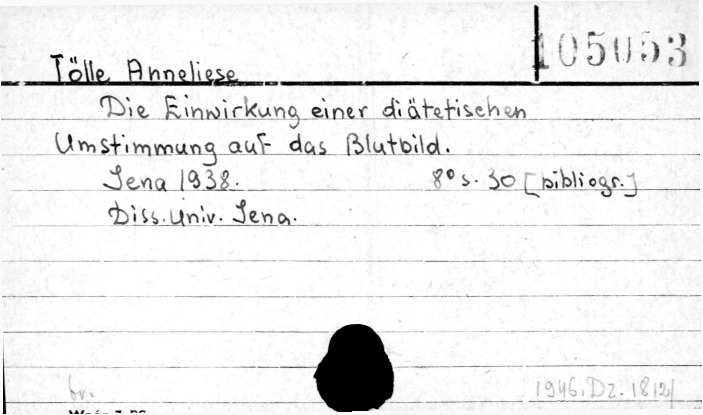 105053
Tölle Anneliese
Die Einwirkung einer diätetischen
Umstimmung auf das Blutbild.
Jena 1938. 8° s. 30 [bibliogr.]
Diss. Univ. Jena.
br. 1946. Dz. 1812/